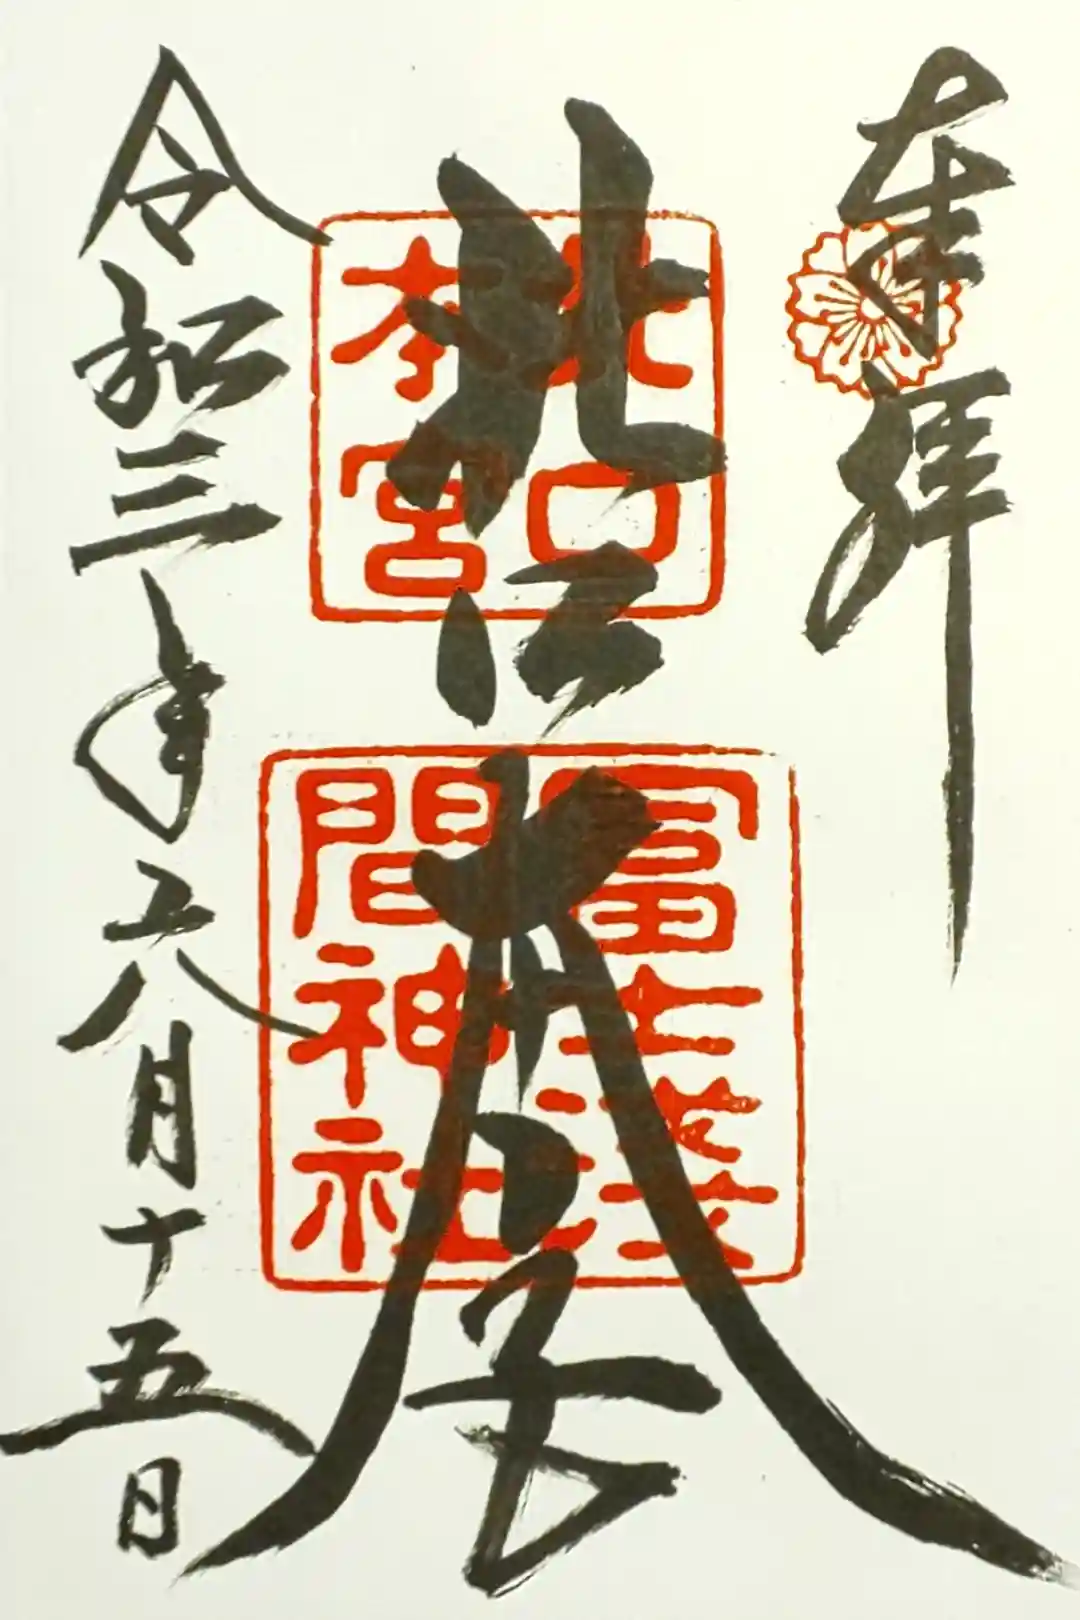 奉拝
北口
北口
本宮
冨士浅
間神社
令和三年六月十五日